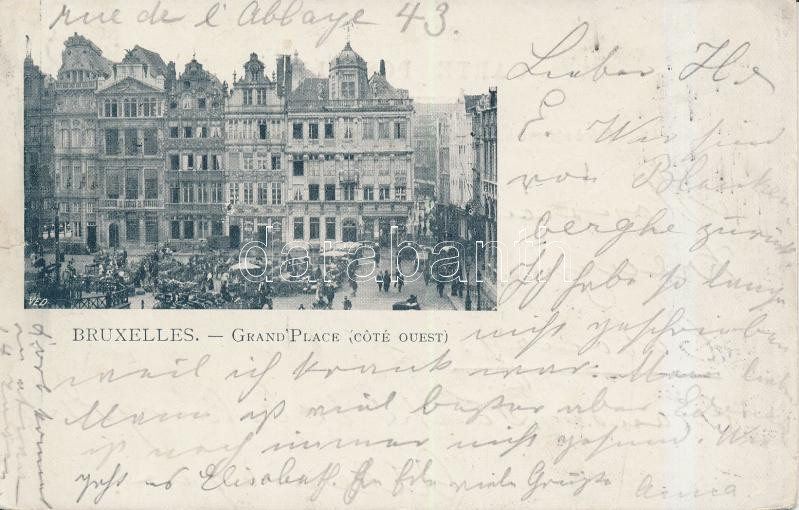 rue de l'Abbaye 43.
Lieber He
E. Wir sind
von Blanken
berghe zurück
Ich habe so lange
nicht geschrieben
weil ich krank war. Mein lieber
Mann ist viel besser aber
ist noch immer nicht gesund. Wie
geht es Elisabeth. viele Grüße Anna.
databanth
VED
BRUXELLES. — GRAND'PLACE (CÔTÉ OUEST)